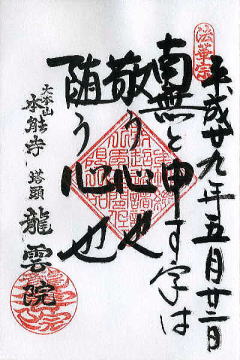 法華宗
平成廿九年五月廿二日
南無と申す字は
敬う心也
随う心也
大本山
本能寺 塔頭 龍雲院